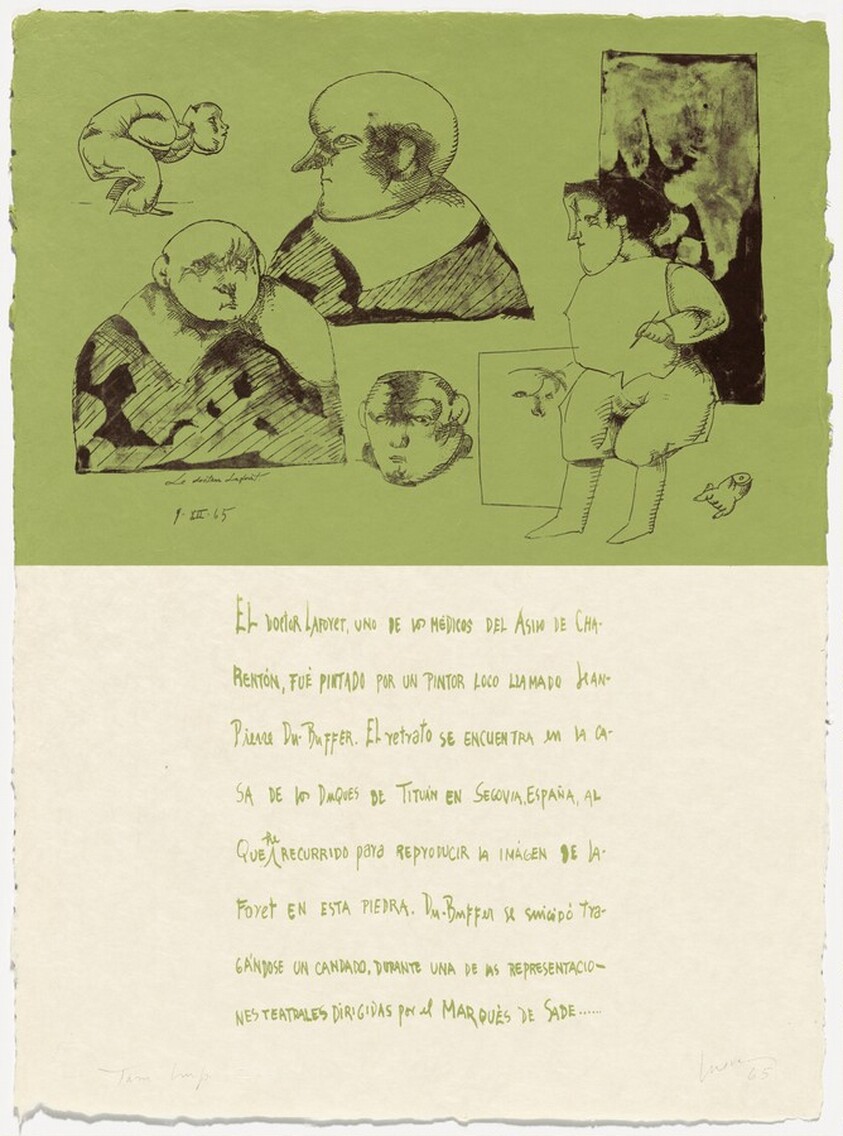 Le docteur Laforêt
9-XII-65
EL DOCTOR LAFORET, UNO DE LOS MÉDICOS DEL ASILO DE CHA-
RENTÓN, FUÉ PINTADO POR UN PINTOR LOCO LLAMADO JEAN-
PIERRE DU-BUFFER. EL retrato SE ENCUENTRA en LA CA-
SA DE LOS DUQUES DE TITUÁN EN SEGOVIA, ESPAÑA, AL
QUE HE RECURRIDO para REPRODUCIR LA IMÁGEN DE LA-
FORET EN ESTA PIEDRA. DU-BUFFER se suicidó TRA-
GÁNDOSE UN CANDADO, DURANTE UNA DE LAS REPRESENTACIO-
NES TEATRALES DIRIGIDAS por el MARQUÈS DE SADE......
Tam Imp
65